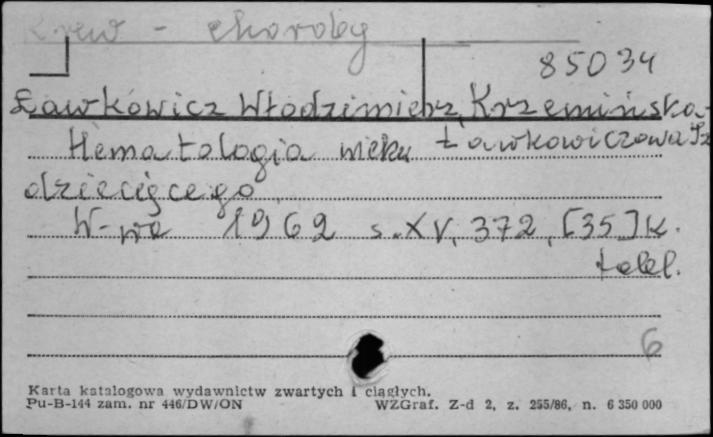 Krew - choroby
85034
Ławkowicz Włodzimierz, Krzemińska-
Hematologia wieku Ławkowiczowa Iz
dziecięcego
W-wa 1962 s. XV, 372, [35] k.
tabl.
6
Karta katalogowa wydawnictw zwartych i ciągłych.
Pu-B-144 zam. nr 446/DW/ON WZGraf. Z-d 2, z. 255/86, n. 6 350 000